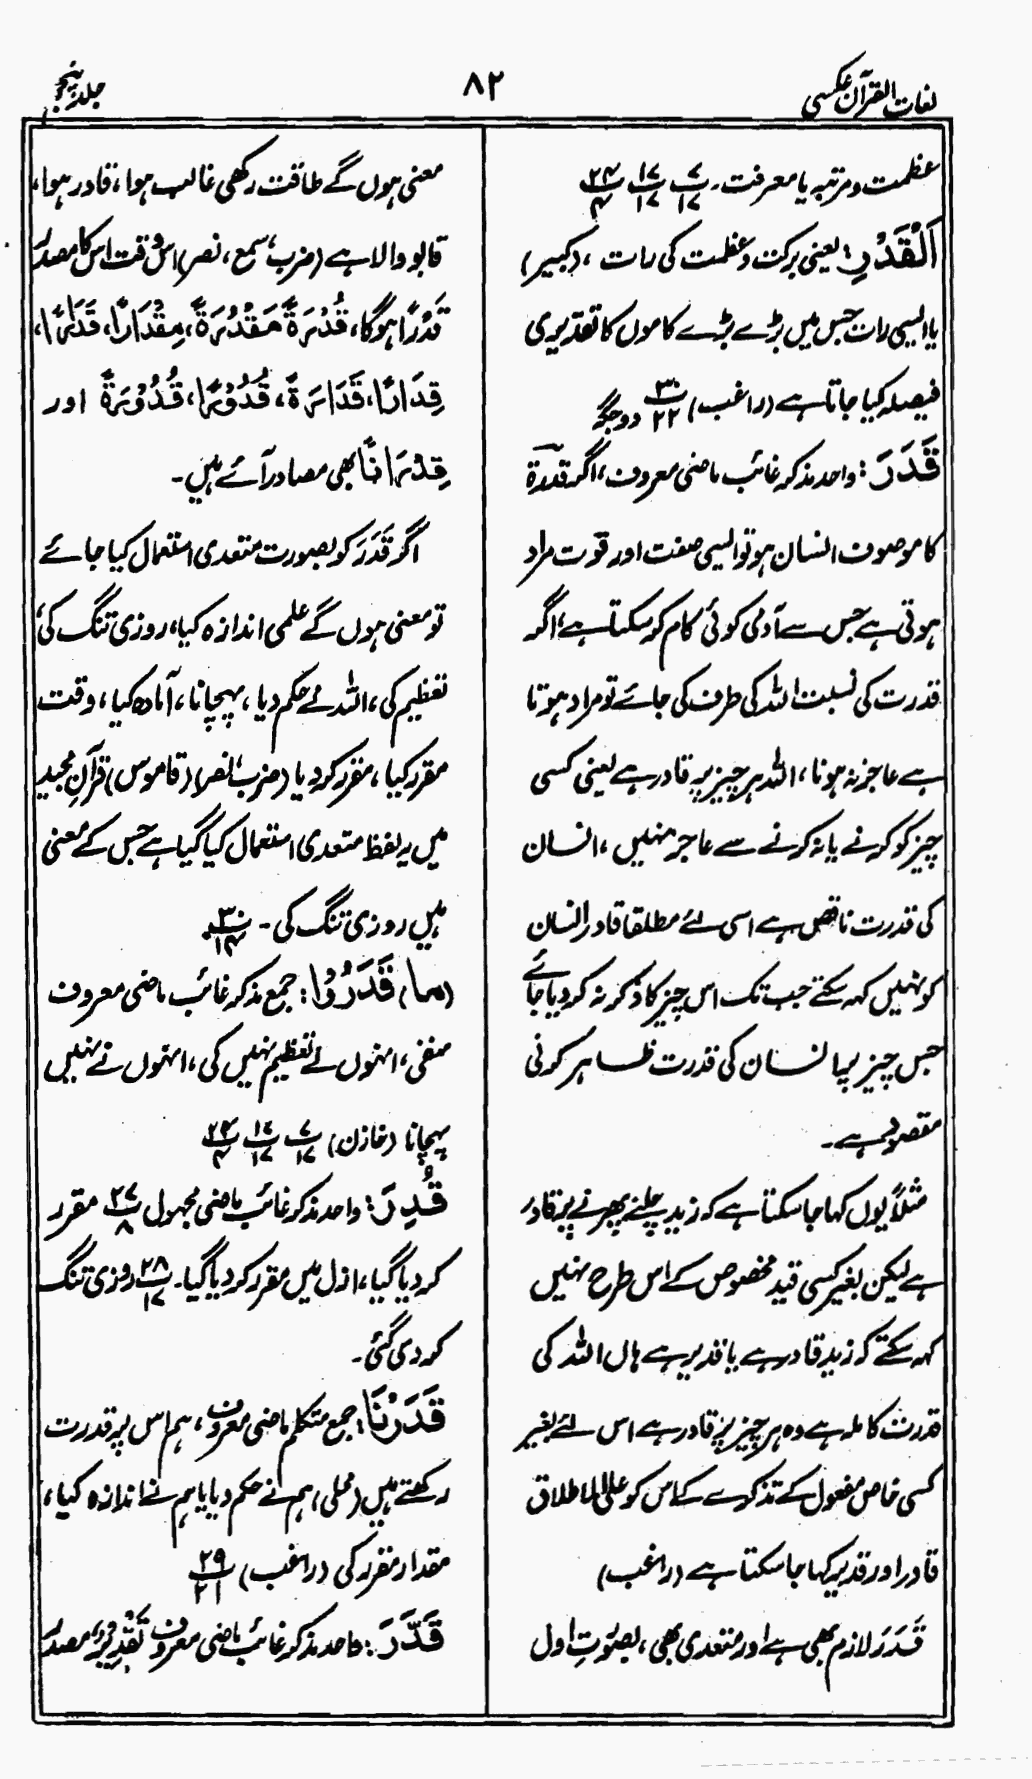 لغات القرآن عکسی
۸۲
جلد پنجم
عظمت و مرتبہ یا معرفت۔ ۷/۱۷ ۱۷/۱۷ ۲۴/۴
اَلْقَدْرِ: یعنی برکت و عظمت کی رات ، (کبیر)
یا ایسی رات جس میں بڑے بڑے کاموں کا تقدیری
فیصلہ کیا جاتا ہے (راغب) ۳۰/۲۲ دو جگہ
قَدَرَ: واحد مذکر غائب ماضی معروف، اگر قدرۃ
کا موصوف انسان ہو تو ایسی صفت اور قوت مراد
ہوتی ہے جس سے آدمی کوئی کام کر سکتا ہے، اگر
قدرت کی نسبت اللہ کی طرف کی جائے تو مراد ہوتا
ہے عاجز نہ ہونا، اللہ ہر چیز پر قادر ہے یعنی کسی
چیز کو کرنے یا نہ کرنے سے عاجز نہیں ، انسان
کی قدرت ناقص ہے اسی لئے مطلقا قادر انسان
کو نہیں کہہ سکتے جب تک اس چیز کا ذکر نہ کر دیا جائے
جس چیز پر انسان کی قدرت ظاہر کرنی
مقصود ہے۔
مثلاً یوں کہا جا سکتا ہے کہ زید چلنے پھرنے پر قادر
ہے لیکن بغیر کسی قید مخصوص کے اس طرح نہیں
کہہ سکتے کہ زید قادر ہے یا قدیر ہے ہاں اللہ کی
قدرت کاملہ ہے وہ ہر چیز پر قادر ہے اس لئے بغیر
کسی خاص مفعول کے تذکرے کے اس کو علی الاطلاق
قادر اور قدیر کہا جا سکتا ہے (راغب)
قَدَرَ لازم بھی ہے اور متعدی بھی، بصورتِ اول
معنی ہوں گے طاقت رکھی غالب ہوا، قادر ہوا،
قابو والا ہے (ضرب، سمع، نصر) اس وقت اس کا مصدر
قَدْرًا ہوگا، قُدْرَةً مَقْدُرَةً، مِقْدَارًا، قَدَارًا،
قِدَارًا، قَدَارَةً، قُدُوْرًا، قُدُوْرَةً اور
قِدْرَانًا بھی مصادر آئے ہیں۔
اگر قَدَرَ کو بصورت متعدی استعمال کیا جائے
تو معنی ہوں گے علمی اندازہ کیا، روزی تنگ کی،
تعظیم کی، اللہ نے حکم دیا، پہچانا، آمادہ کیا، وقت
مقرر کیا، مقرر کر دیا (ضرب، نصر) (قاموس) قرآنِ مجید
میں یہ لفظ متعدی استعمال کیا گیا ہے جس کے معنی
ہیں روزی تنگ کی۔ ۳۰/۱۴
(ما) قَدَرُوْا: جمع مذکر غائب ماضی معروف
منفی، انہوں نے تعظیم نہیں کی، انہوں نے نہیں
پہچانا (خازن) ۷/۱۷ ۱۷/۱۷ ۲۴/۴
قُدِرَ: واحد مذکر غائب ماضی مجہول ۲۷/۸ مقرر
کر دیا گیا، ازل میں مقرر کر دیا گیا۔ ۲۸/۱۷ روزی تنگ
کر دی گئی۔
قَدَرْنَا: جمع متکلم ماضی معروف، ہم اس پر قدرت
رکھتے ہیں (محلی)، ہم نے حکم دیا یا ہم نے اندازہ کیا،
مقدار مقرر کی (راغب) ۲۹/۲۱
قَدَّرَ: واحد مذکر غائب ماضی معروف تَقْدِیْرٌ مصدر